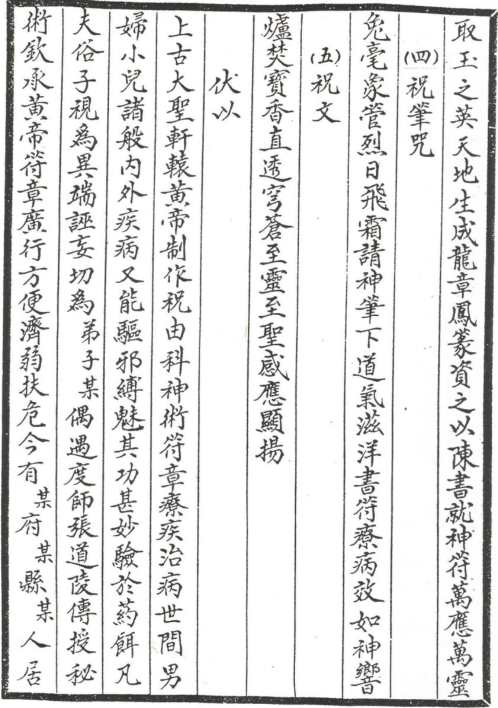 取玉之英天地生成龍章鳳篆資之以陳書就神符萬應萬靈
(四)祝筆咒
兔毫象管烈日飛霜請神筆下道氣滋洋書符療病效如神響
(五)祝文
爐焚寶香直透穹蒼至靈至聖感應顯揚
伏以
上古大聖軒轅黃帝制作祝由科神術符章療疾治病世間男
婦小兒諸般內外疾病又能驅邪縛魅其功甚妙驗於葯餌凡
夫俗子視為異端誣妄切為弟子某偶遇度師張道陵傳授秘
術欽承黃帝符章廣行方便濟弱扶危今有某府某縣某人居